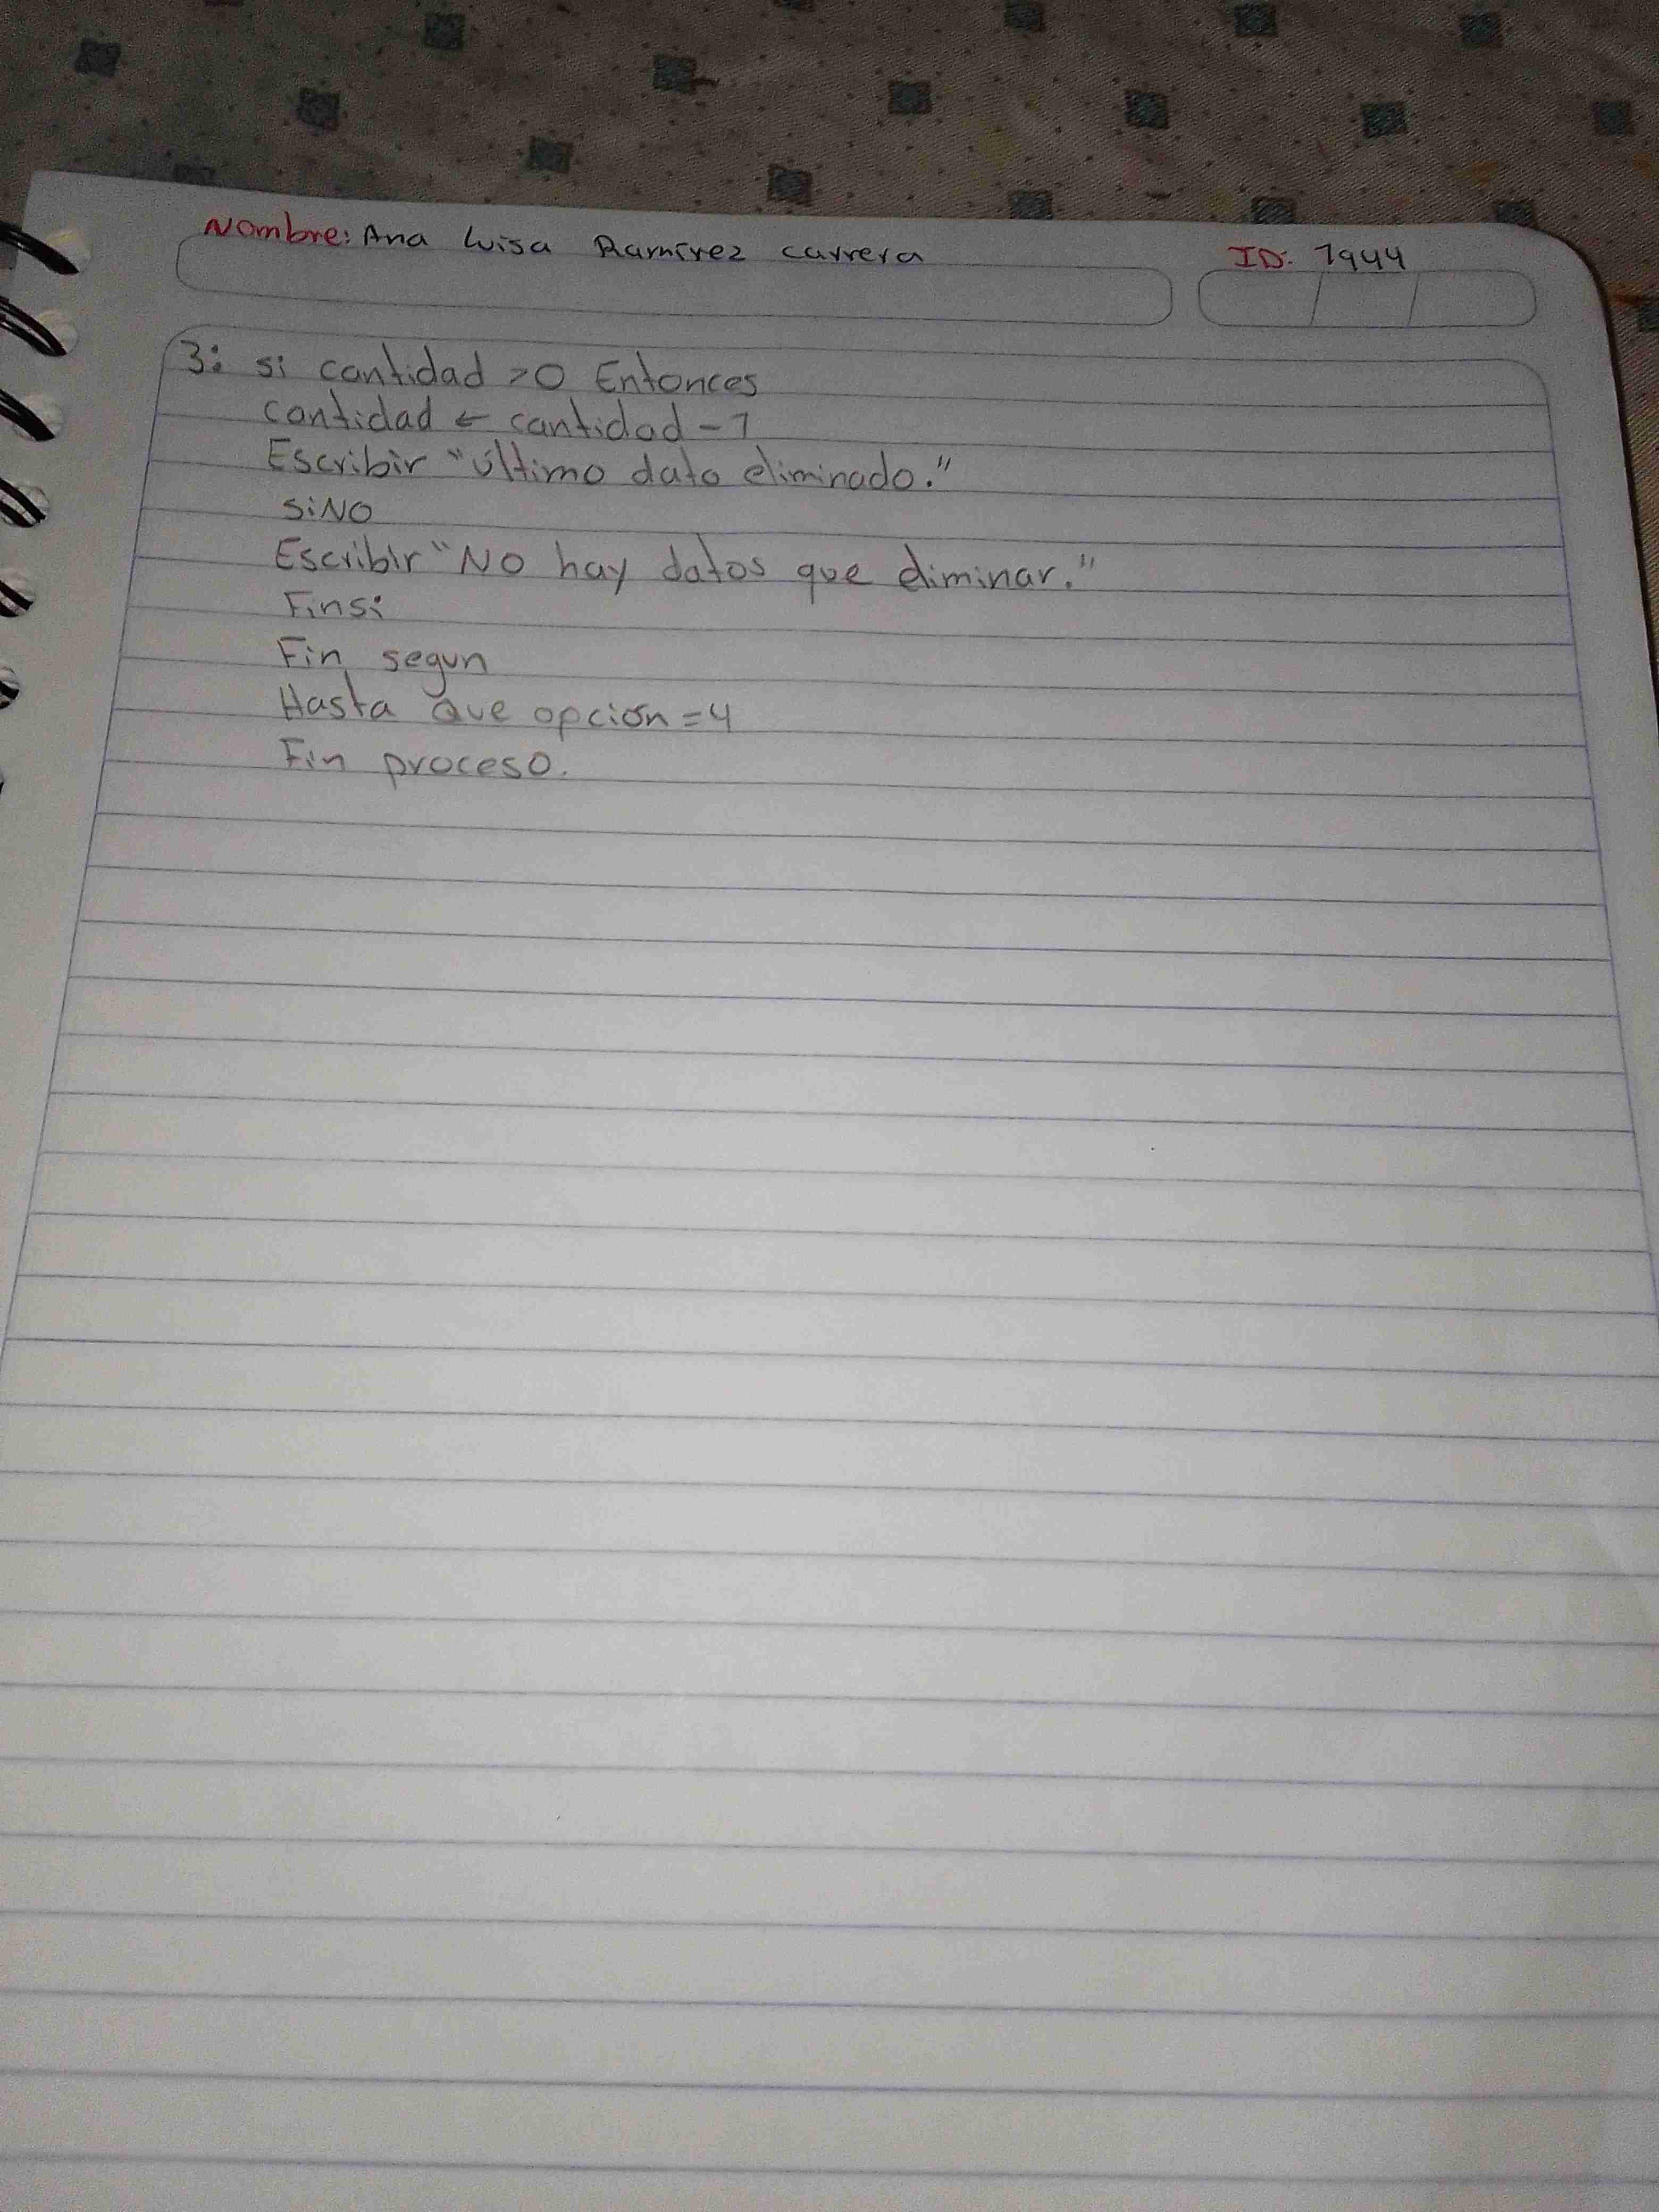 Nombre: Ana Luisa Ramírez carrera
ID: 1944
3: si cantidad >0 Entonces
cantidad ← cantidad - 1
Escribir "último dato eliminado."
SiNO
Escribir "No hay datos que eliminar."
Finsi
Fin segun
Hasta Que opción = 4
Fin proceso.